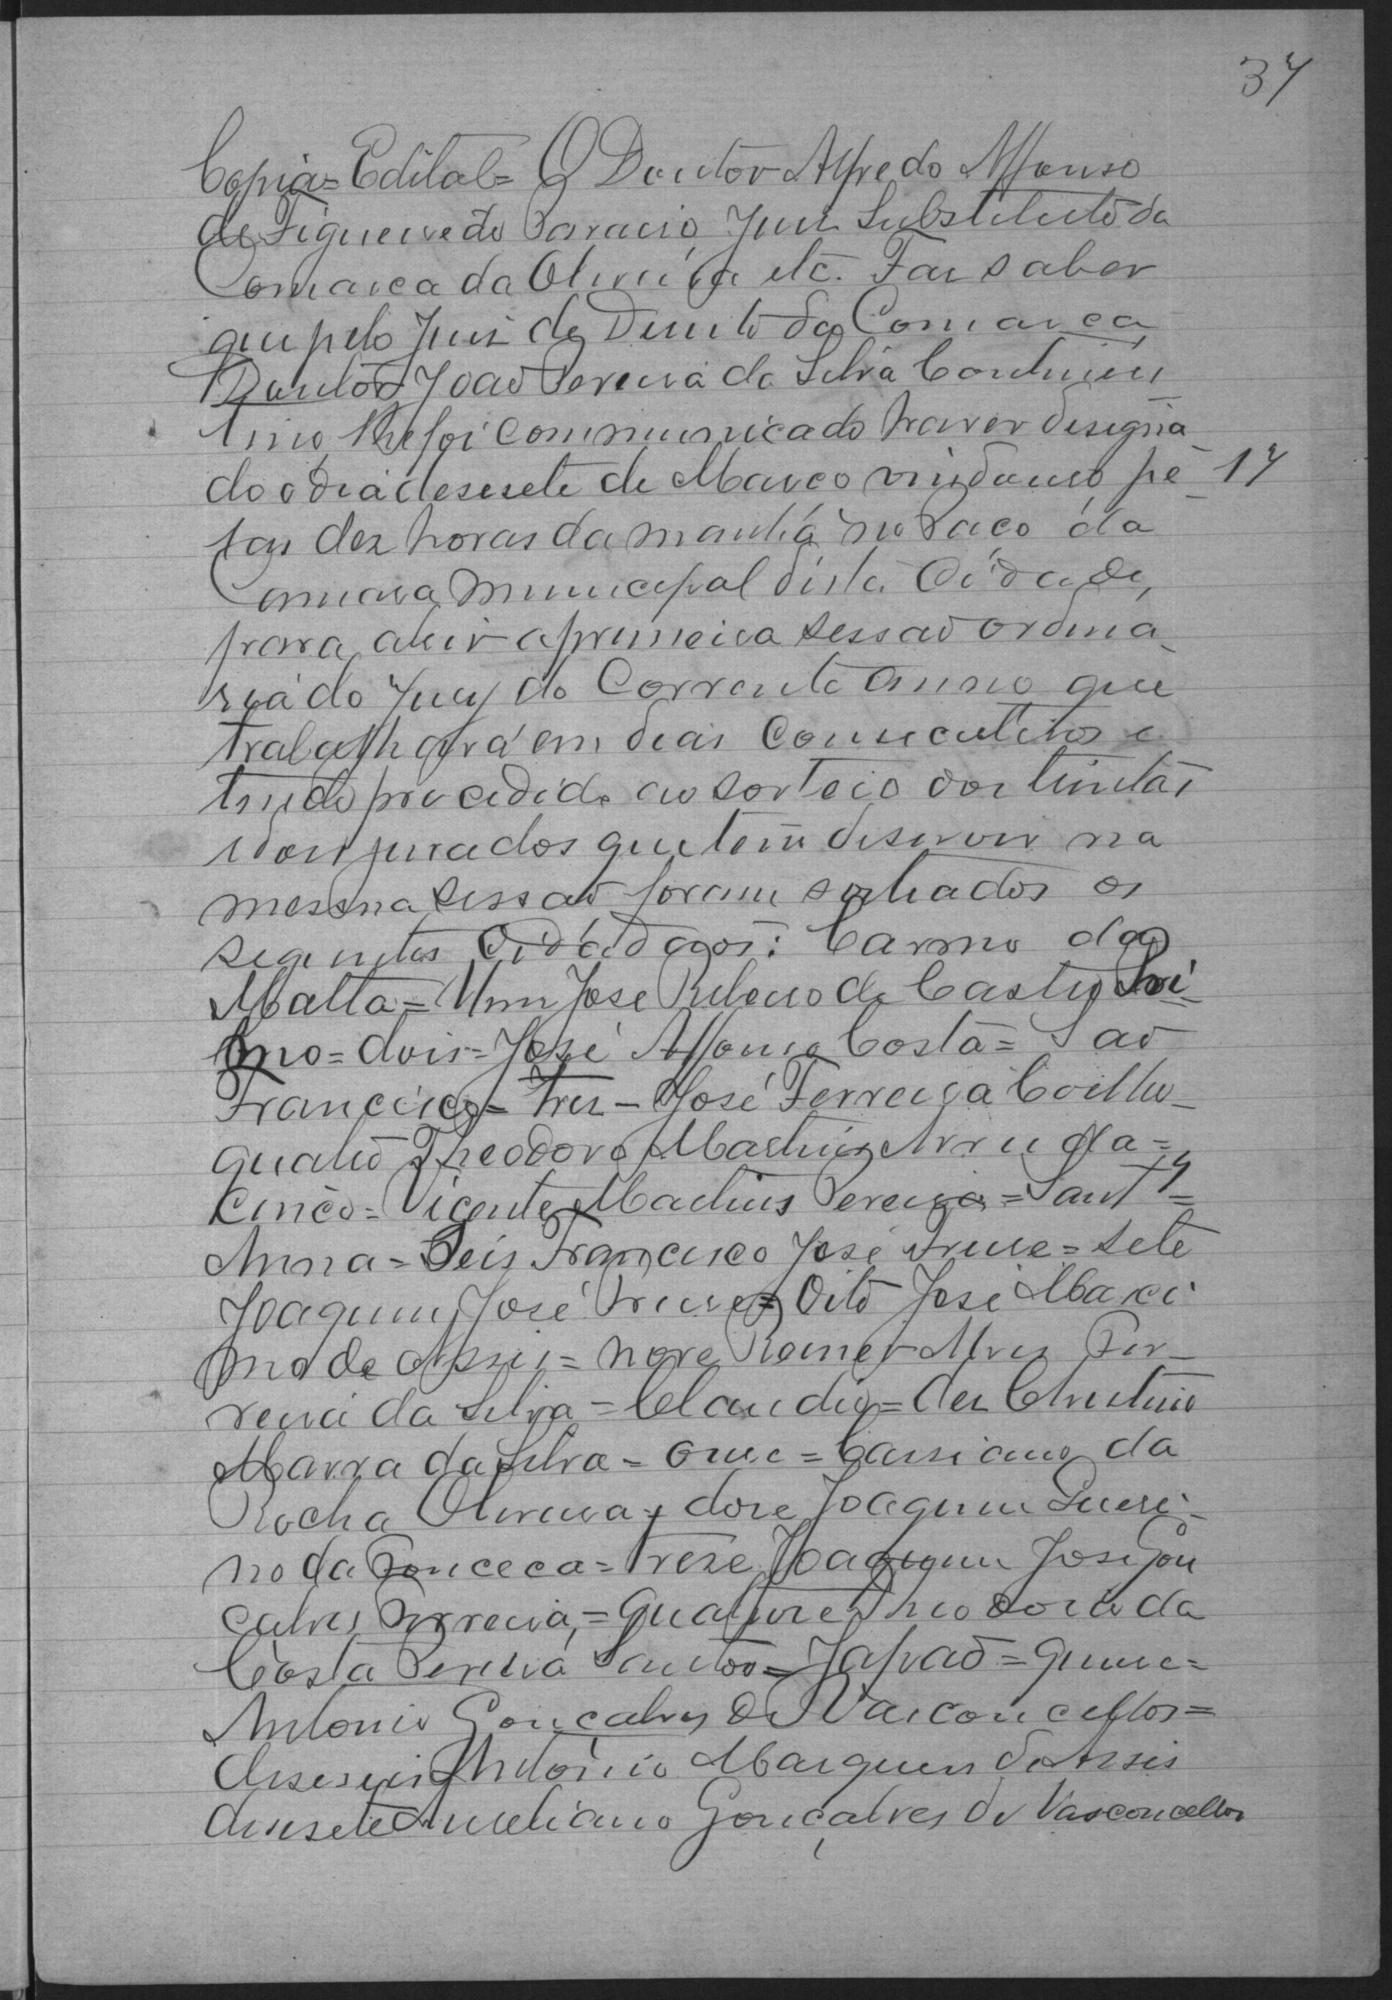 37
Copia= Edital= O Doutor Alfredo Affonso
de Figueiredo Paraiso Juiz Substituto da
Comarca da Oliveira etc. Faz saber
que pelo Juiz de Direito da Comarca
Doutor João Pereira da Silva Continen
tino, lhe foi communicado haver designa
do o dia desesete de Março vindouro pe- 17
las dez horas da manhã no Paço da
Camara Municipal desta Cidade,
para abrir a primeira sessão ordina
ria do Jury do Corrente anno que
trabalhará em dias Consecutivos e
tendo procedido ao sorteio dos
jurados que tem de servir na
mesma sessão foram sorteados os
seguintes Cidadãos: Carmo da
Matta= Um José Ribeiro de Castro Pri
mo= dois= José Affonso Costa= São
Francisco= Tres- José Ferreira Coelho-
quatro Theodoro Martins Arruda=
Cinco= Vicente Martins Pereira= Sant'
Anna= Seis Francisco José Freire= Sete
Joaquim José Freire= Oito José Maxi
mo de Assis= nove Alves Fer-
reira da Silva= Claudio= dez
Marra da Silva= onze= Cassiano da
Rocha Oliveira, doze Joaquim
no da Fonceca= Treze Joaquim José Gon
calves Ferreira,= Quatorze
Costa Pereira Santos= Japão= quinze=
Antonio Gonçalves de Vasconcellos=
desesseis Antonio Marques de Assis
desesete Aureliano Gonçalves de Vasconcellos